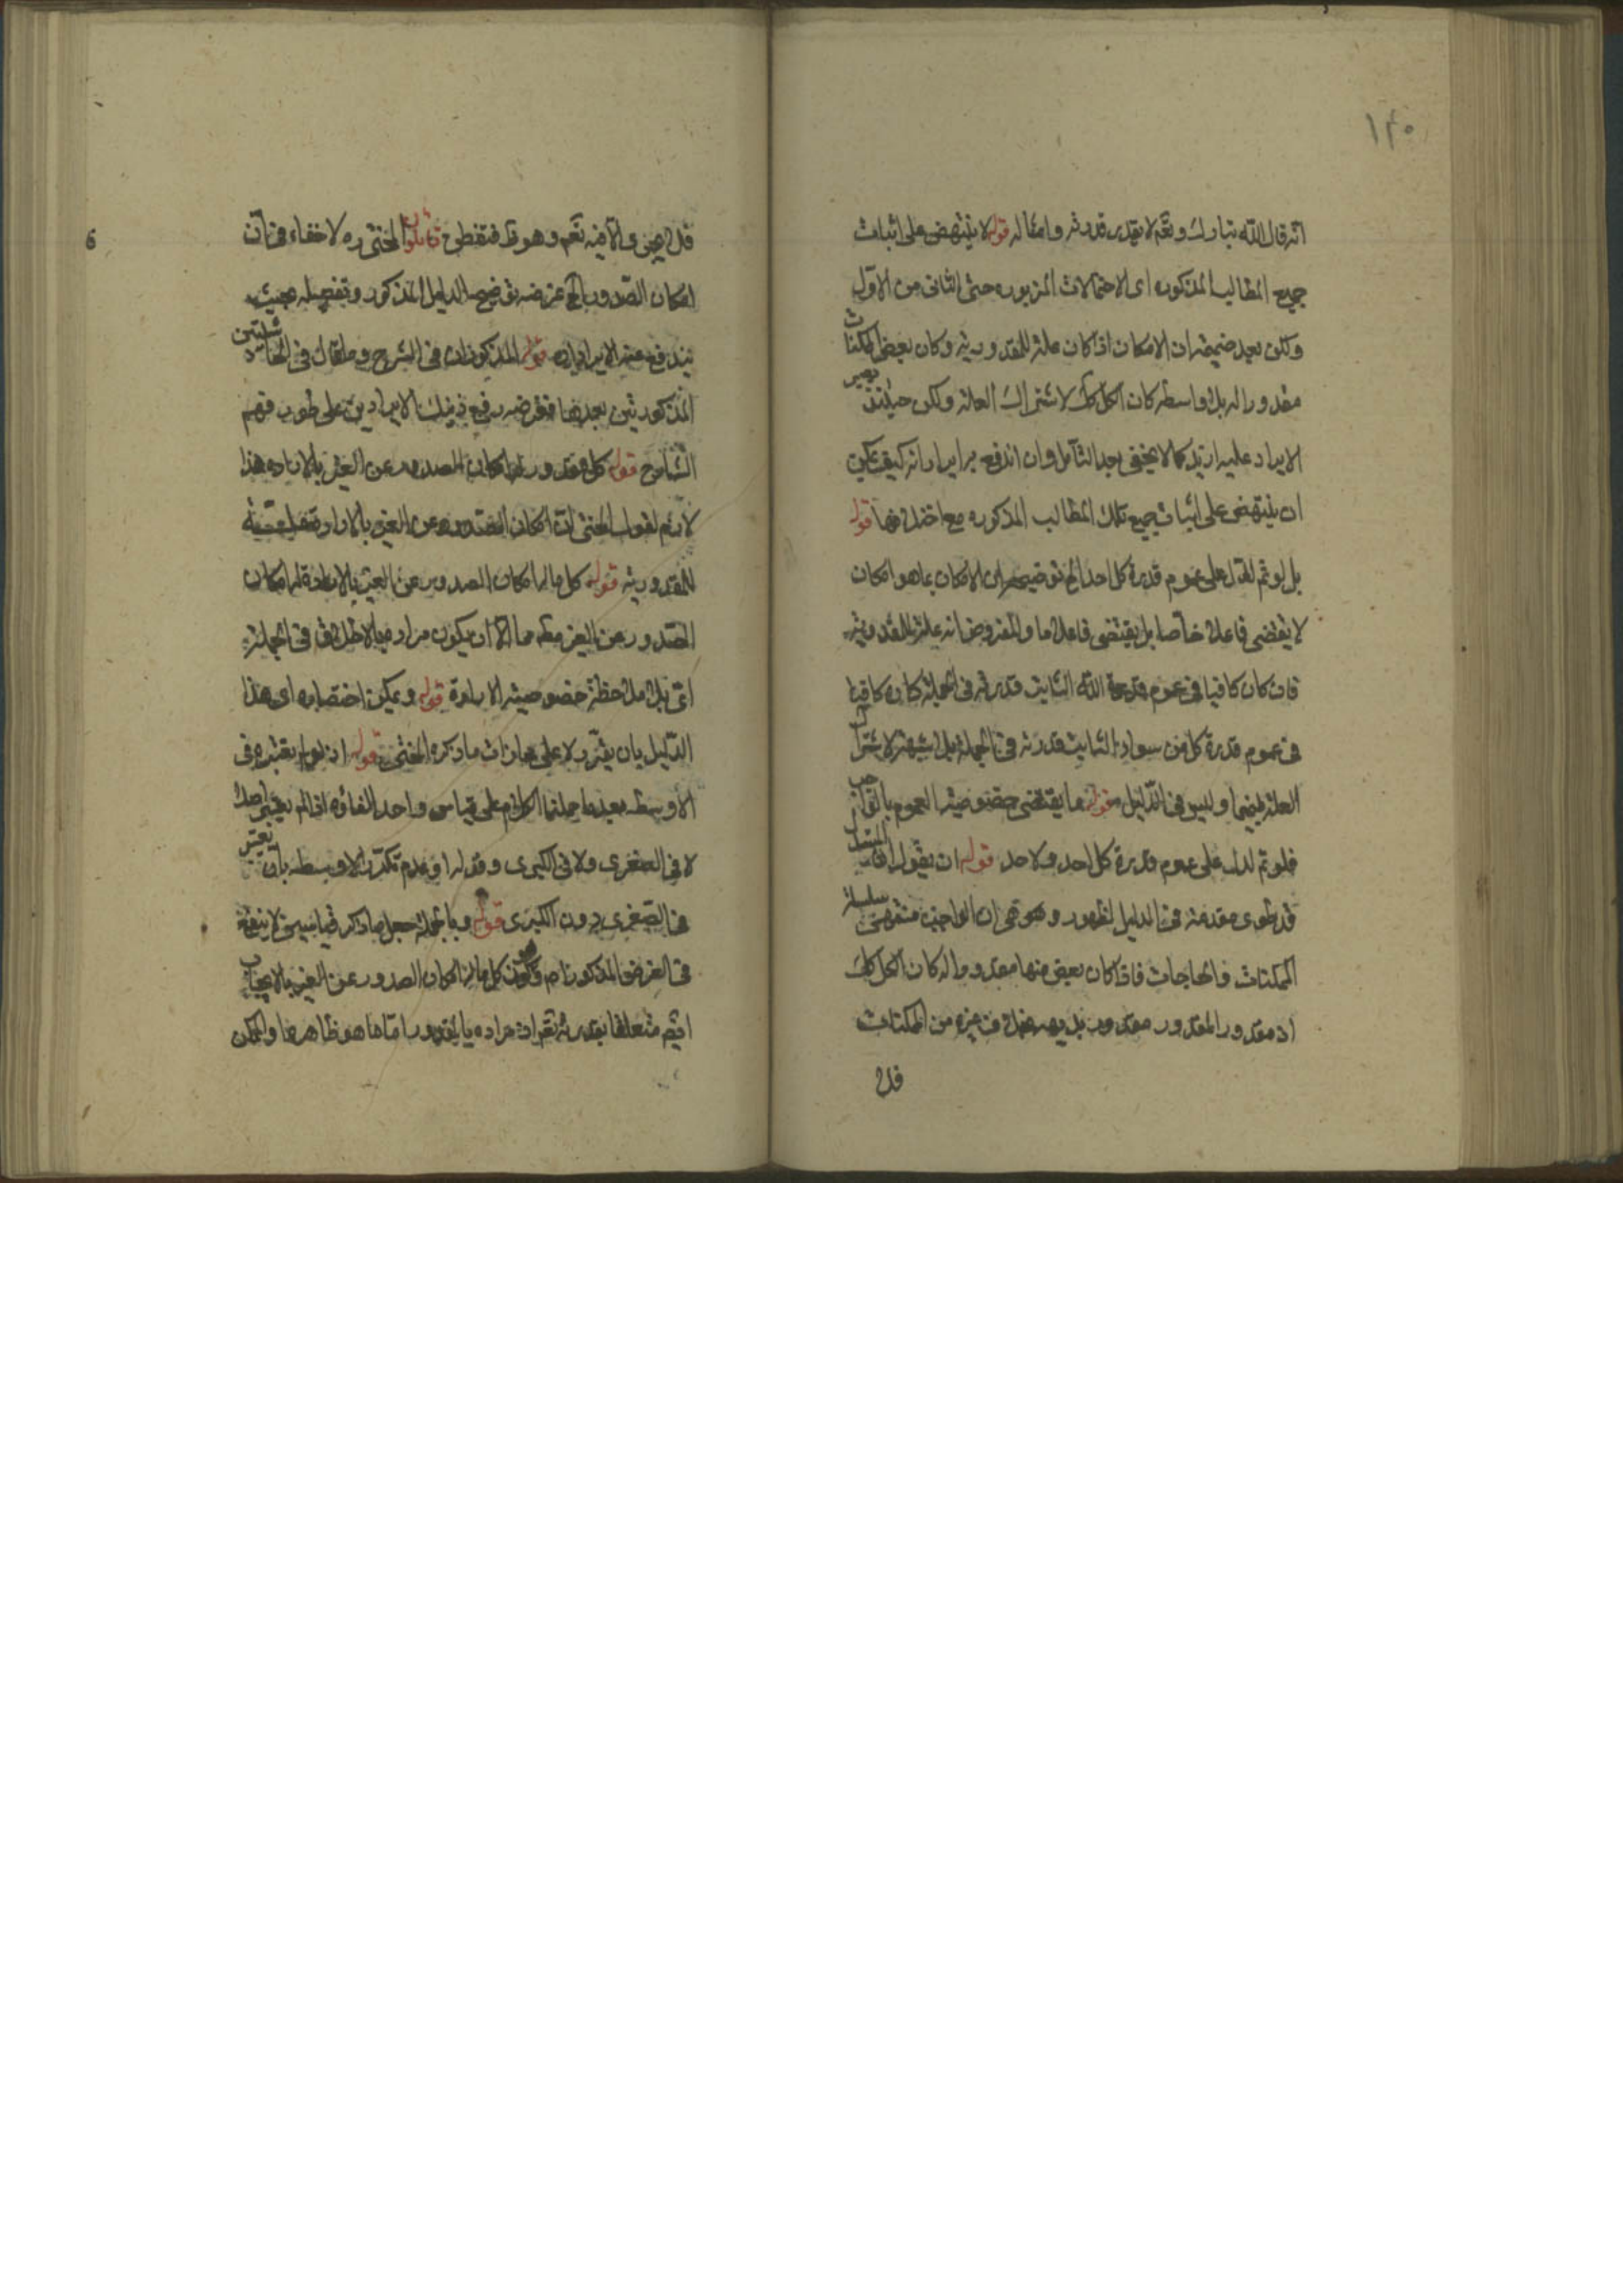 ١٢٠
انه قال الله تبارك وتعم لا بقدر قدرته وامثاله قوله لا ينتهض على اثبات
جميع المطالب المذكوره اى الاحتمالات المزبوره حتى الثانى من الاول
ولكن بعد ضميمة ان الامكان اذا كان علة للمقدورية وكان بعض الممكنات
مقدورا له بلا واسطه كان الكل كك لاشتراك العلة ولكن حينئذ يصير
الايراد عليه ازيد كما لا يخفى بعد التأمل وان اندفع ايراد انه كيف يمكن
ان ينتهض على اثبات جميع تلك المطالب المذكوره مع اختلافها قوله
بل لو تم لدل على عموم قدرة كل احد الخ توضيحه ان الامكان بما هو امكان
لا يقتضى فاعلا خاصا بل يقتضى فاعلا ما والمفروض انه علة للمقدورية
فان كان كافيا فى عموم قدرة الله الثابت قدرته فى الجملة كان كافيا
فى عموم قدرة كل من سواه الثابت قدرته فى الجملة بلا شبهة لاشتراك
العلة بينهما وليس فى الدليل ما يقتضى خصوصية العموم بالواجب
فلو تم لدل على عموم قدرة كل احد ولاحد قوله ان يقول المستدل
قد طوى مقدمة فى الدليل لظهور وهو هى ان الواجب منتهى سلسلة
الممكنات والحاجات فاذا كان بعض منها مقدورا له كان الكل كك
اذ مقدور المقدور مقدور بل يصـ فضلا عن غيره من الممكنات
فلا
فلا يعنى والا فيه نعم وهو قد فتفطن قال المحشى ره لا خفاء فى ان
امكان الصدور الخ غرضه توضيح الدليل المذكور وتفصيله بحيث
يندفع عنه الايرادان قوله المذكوران فى الشرح وما قال فى الحاشيتين
المذكورتين بعدها فغرضه رفع ذينك الايرادين على طور فهم
الشارح قوله كل مقدور له امكان الصدور عن الغير بالاراده هذا
لازم لقول المحشى ان امكان الصدور عن الغير بالاراده
للمقدورية قوله كل ما له امكان الصدور عن الغير بالارادة له امكان
الصدور عن الغير مطلقا الا ان يكون مراده بالاطلاق فى الجملة
اى بلا ملاحظة خصوصية الارادة قوله ويمكن اختصاره اى هذا
الدليل بان يقرر لا على محاذات ما ذكره المحشى قوله اذ لو لم يعتبره فى
الاوسط بعد ما حملنا الكلام على قياس واحد الغاؤه اذا لم يعتبر اصلا
لا فى الصغرى ولا فى الكبرى وقوله او عدم تكرر الاوسط بان يعتبر
فى الصغرى دون الكبرى قوله وبالجملة جعل ما ذكر قياسين لا ينفع
فى الغرض المذكور كل ما له امكان الصدور عن الغير بالايجاب
ايضا متعلقا بقدرته تعم اذ مراده بالمقدور اما ما هو ظاهرها والممكن